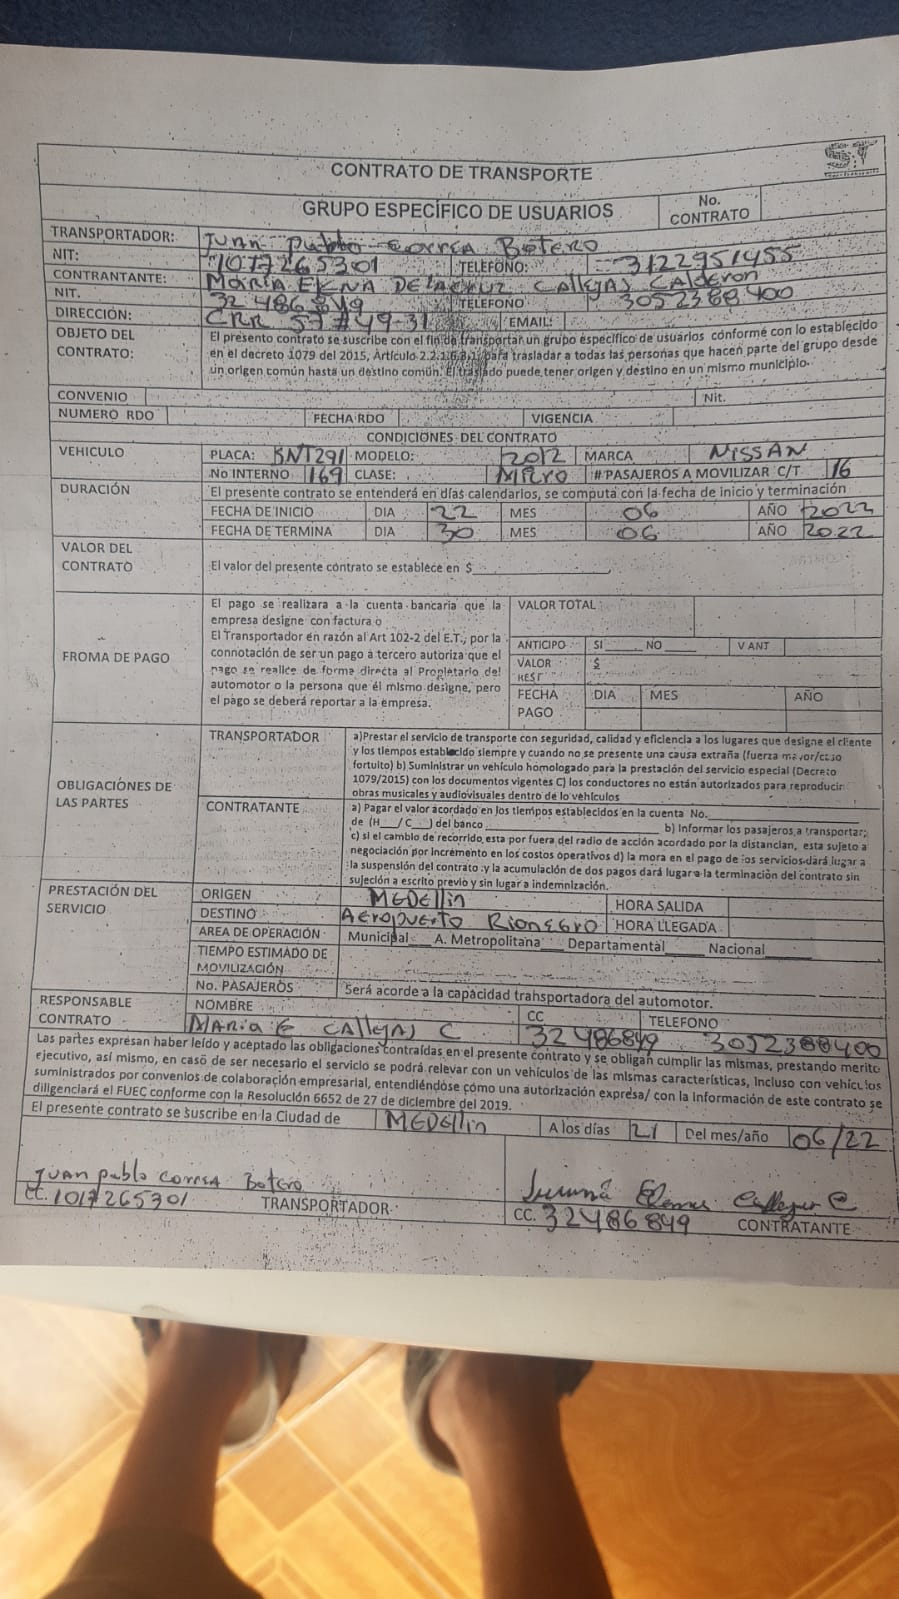 CONTRATO DE TRANSPORTE
GRUPO ESPECÍFICO DE USUARIOS No. CONTRATO
TRANSPORTADOR: Juan Pablo Correa Botero
NIT: 1017265301 TELEFONO: 3122951455
CONTRATANTE: MARIA ELENA DE LA CRUZ CALLEJAS CALDERON
NIT. 32486849 TELEFONO 3052388400
DIRECCIÓN: CRR 57 #49-31 EMAIL:
OBJETO DEL CONTRATO: El presente contrato se suscribe con el fin de transportar un grupo específico de usuarios conforme con lo establecido
en el decreto 1079 del 2015, Artículo 2.2.1.6.3.1, para trasladar a todas las personas que hacen parte del grupo desde
un origen común hasta un destino común. El traslado puede tener origen y destino en un mismo municipio.
CONVENIO Nit.
NUMERO RDO FECHA RDO VIGENCIA
CONDICIONES DEL CONTRATO
VEHICULO PLACA: MODELO: 2012 MARCA NISSAN
No INTERNO 169 CLASE: Micro # PASAJEROS A MOVILIZAR C/T 16
DURACIÓN El presente contrato se entenderá en días calendarios, se computa con la fecha de inicio y terminación
FECHA DE INICIO DIA 22 MES 06 AÑO 2022
FECHA DE TERMINA DIA 30 MES 06 AÑO 2022
VALOR DEL CONTRATO El valor del presente contrato se establece en $
FROMA DE PAGO
El pago se realizara a la cuenta bancaria que la
empresa designe con factura o
El Transportador en razón al Art 102-2 del E.T., por la
connotación de ser un pago a tercero autoriza que el
pago se realice de forma directa al Propietario del
automotor o la persona que él mismo designe, pero
el pago se deberá reportar a la empresa.
VALOR TOTAL
ANTICIPO SI NO V ANT
VALOR REST $
FECHA PAGO DIA MES AÑO
OBLIGACIÓNES DE LAS PARTES
TRANSPORTADOR a)Prestar el servicio de transporte con seguridad, calidad y eficiencia a los lugares que designe el cliente
y los tiempos establecido siempre y cuando no se presente una causa extraña (fuerza mayor/caso
fortuito) b) Suministrar un vehículo homologado para la prestación del servicio especial (Decreto
1079/2015) con los documentos vigentes C) los conductores no están autorizados para reproducir
obras musicales y audiovisuales dentro de lo vehículos
CONTRATANTE a) Pagar el valor acordado en los tiempos establecidos en la cuenta No.
de (H__/C__) del banco b) Informar los pasajeros a transportar;
c) si el cambio de recorrido esta por fuera del radio de acción acordado por la distancian, esta sujeto a
negociación por incremento en los costos operativos d) la mora en el pago de los servicios dará lugar a
la suspensión del contrato y la acumulación de dos pagos dará lugar a la terminación del contrato sin
sujeción a escrito previo y sin lugar a indemnización.
PRESTACIÓN DEL SERVICIO
ORIGEN MEDEllin HORA SALIDA
DESTINO AEROPUERTO RIONEGRO HORA LLEGADA
AREA DE OPERACIÓN Municipal A. Metropolitana Departamental Nacional
TIEMPO ESTIMADO DE MOVILIZACIÓN
No. PASAJEROS Será acorde a la capacidad transportadora del automotor.
RESPONSABLE CONTRATO NOMBRE CC TELEFONO
MARIA E CALLEJAS C 32486849 3052388400
Las partes expresan haber leído y aceptado las obligaciones contraídas en el presente contrato y se obligan cumplir las mismas, prestando merito
ejecutivo, así mismo, en casó de ser necesario el servicio se podrá relevar con un vehículos de las mismas características, incluso con vehículos
suministrados por convenios de colaboración empresarial, entendiéndose como una autorización expresa/ con la información de este contrato se
diligenciará el FUEC conforme con la Resolución 6652 de 27 de diciembre del 2019.
El presente contrato se suscribe en la Ciudad de MEDEllin A los días 21 Del mes/año 06/22
Juan pablo correa Botero
CC. 1017265301 TRANSPORTADOR
Elena Callejas C
CC. 32486849 CONTRATANTE